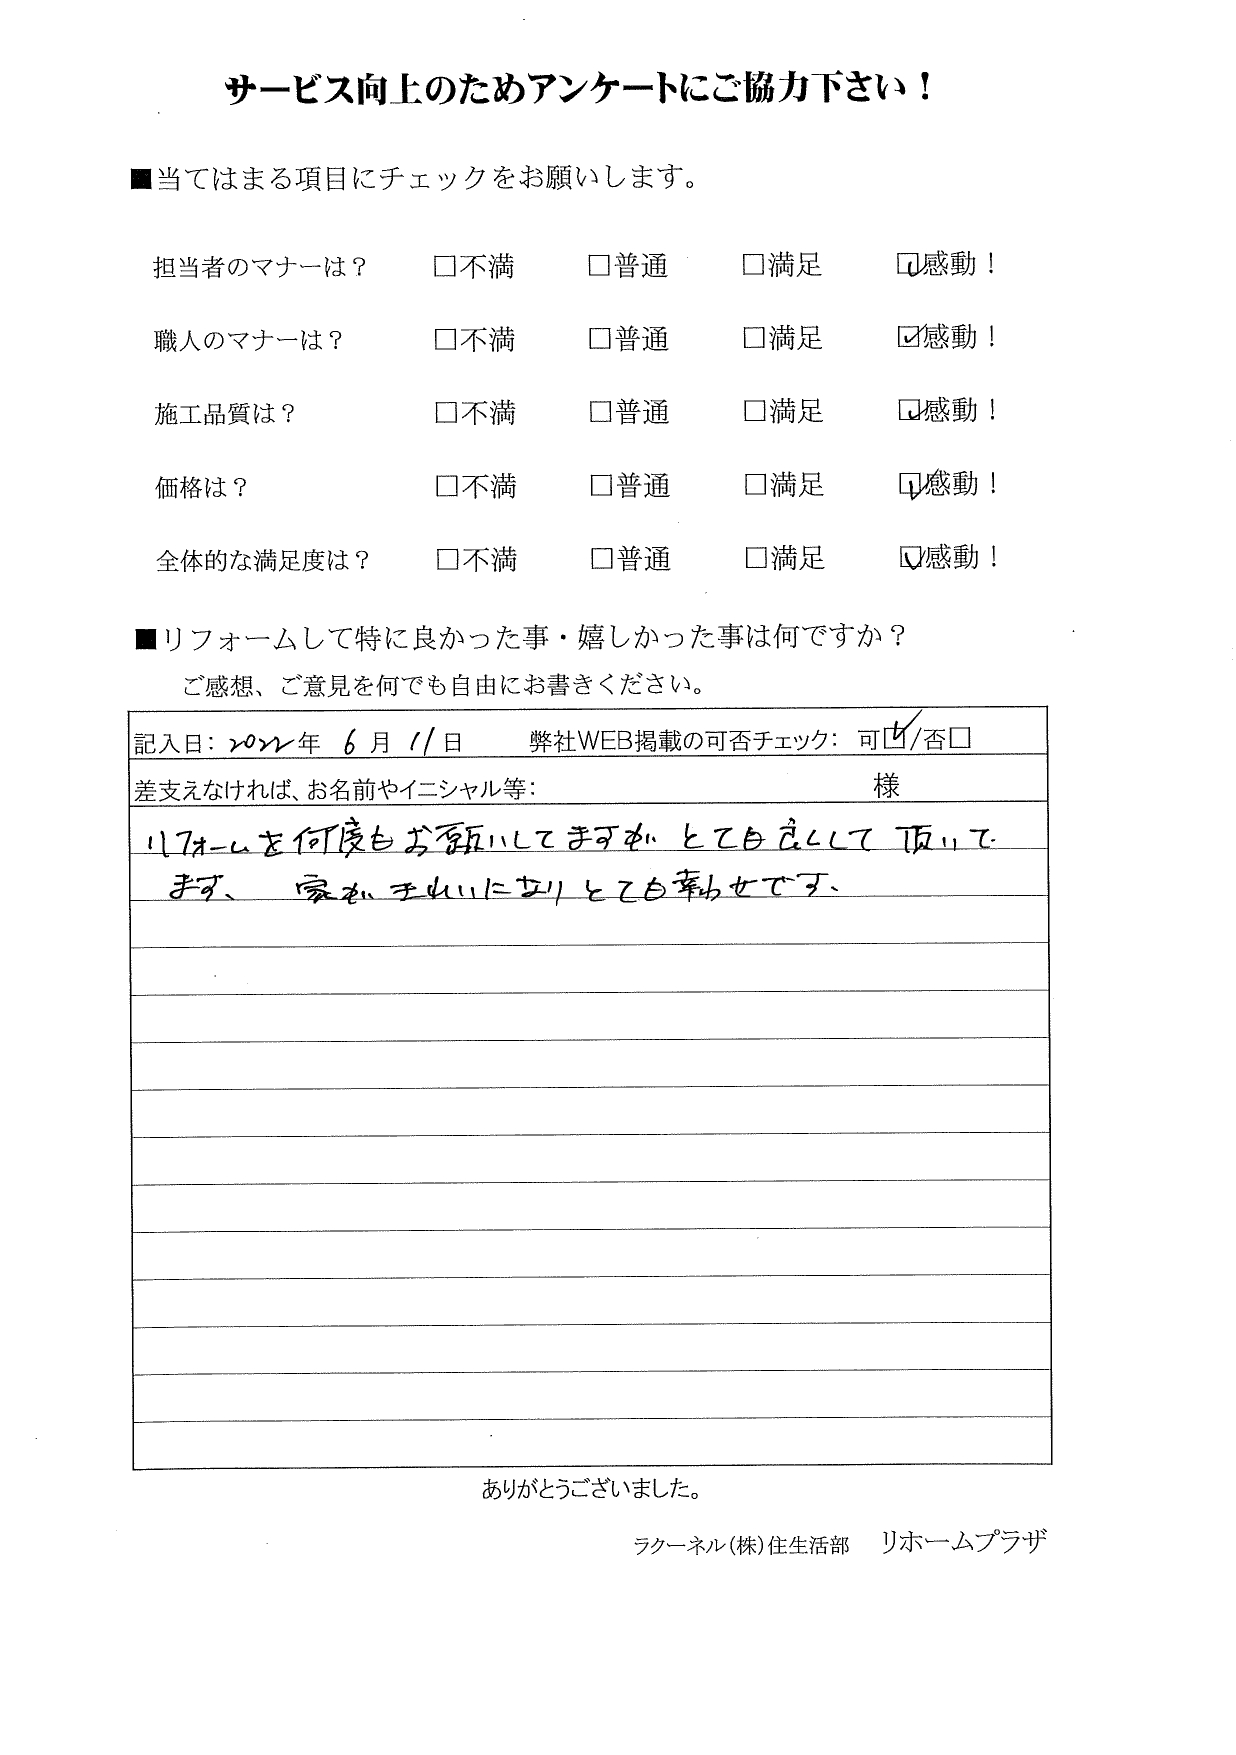 サービス向上のためアンケートにご協力下さい！
■当てはまる項目にチェックをお願いします。
担当者のマナーは？ □不満 □普通 □満足 ☑感動！
職人のマナーは？ □不満 □普通 □満足 ☑感動！
施工品質は？ □不満 □普通 □満足 ☑感動！
価格は？ □不満 □普通 □満足 ☑感動！
全体的な満足度は？ □不満 □普通 □満足 ☑感動！
■リフォームして特に良かった事・嬉しかった事は何ですか？
ご感想、ご意見を何でも自由にお書きください。
記入日：2022年 6月 11日 弊社WEB掲載の可否チェック： 可☑/否□
差支えなければ、お名前やイニシャル等： 様
リフォームを何度もお願いしてますが とても良くして 頂いて
ます、 家が きれいになり とても幸わせです、
ありがとうございました。
ラクーネル（株）住生活部 リホームプラザ